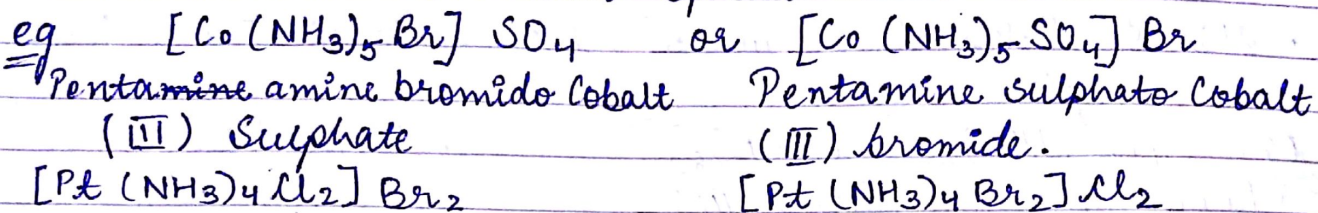 eg [Co(NH3)5 Br] SO4 or [Co(NH3)5 SO4] Br
Pentamine amine bromido Cobalt Pentamine sulphato Cobalt
(III) Sulphate (III) bromide.
[Pt (NH3)4 Cl2] Br2 [Pt (NH3)4 Br2] Cl2